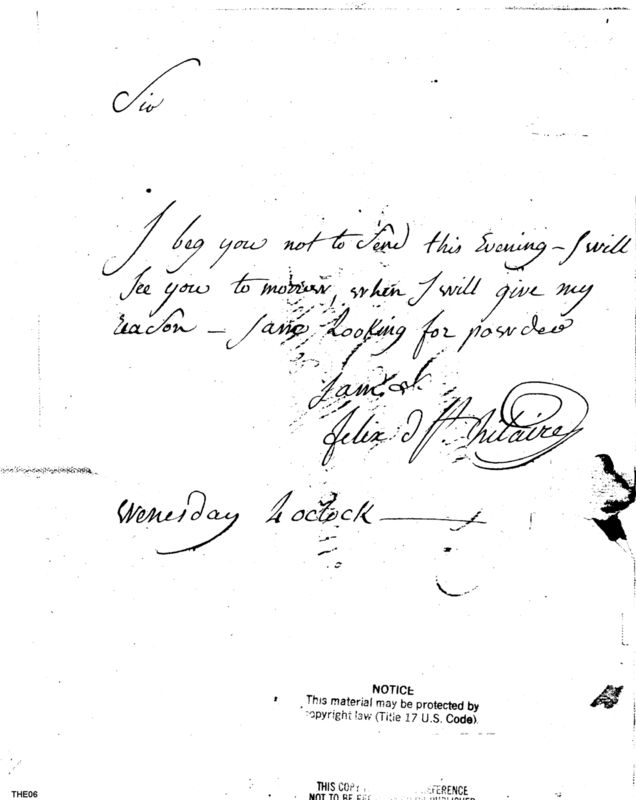 Sir
I beg you not to Send this Evening - I will
See you to morrow, when I will give my
reason - I am Looking for powder
I am &c
felix d St. hilaire
Wenesday 4 octock
NOTICE
This material may be protected by
copyright law (Title 17 U.S. Code).
THIS COPY
NOT TO BE
THE06